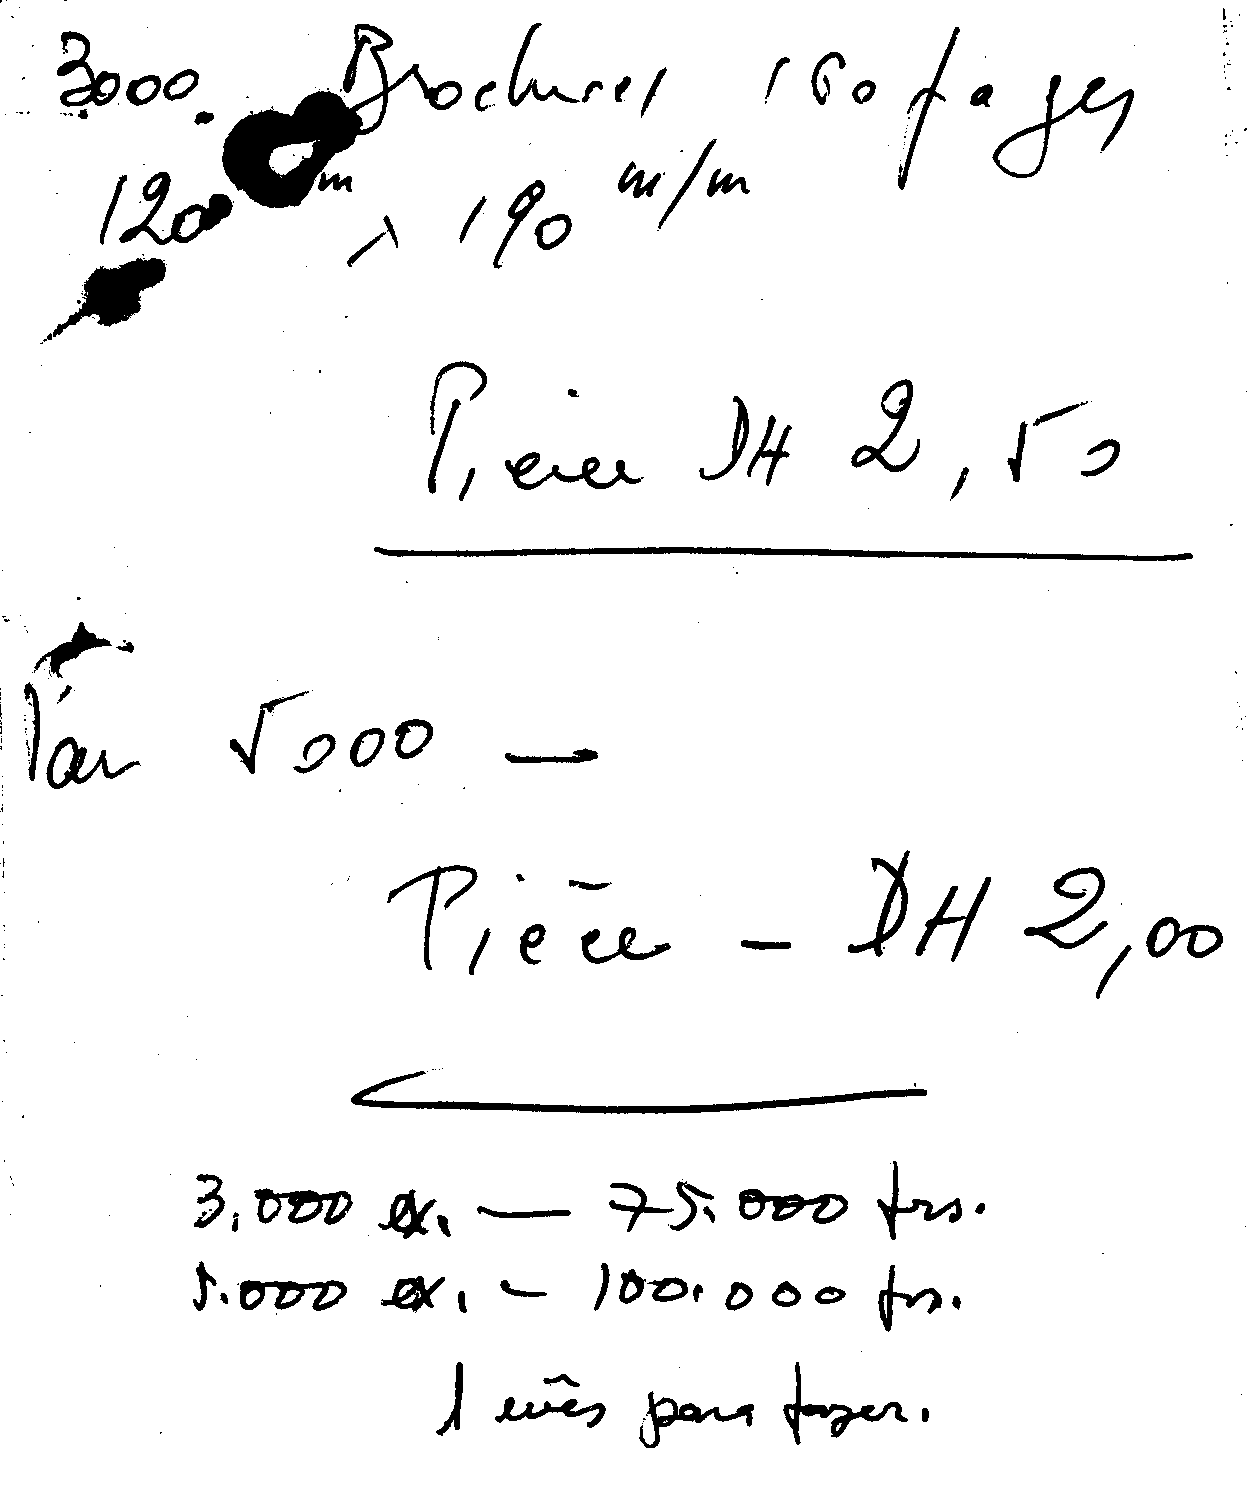 3000. Brochures 160 pages
120 m/m x 190 m/m
Pièce DH 2,50
Par 5000 —
Pièce — DH 2,00
3.000 ex. — 75.000 frs.
5.000 ex. — 100.000 frs.
1 mês para fazer.